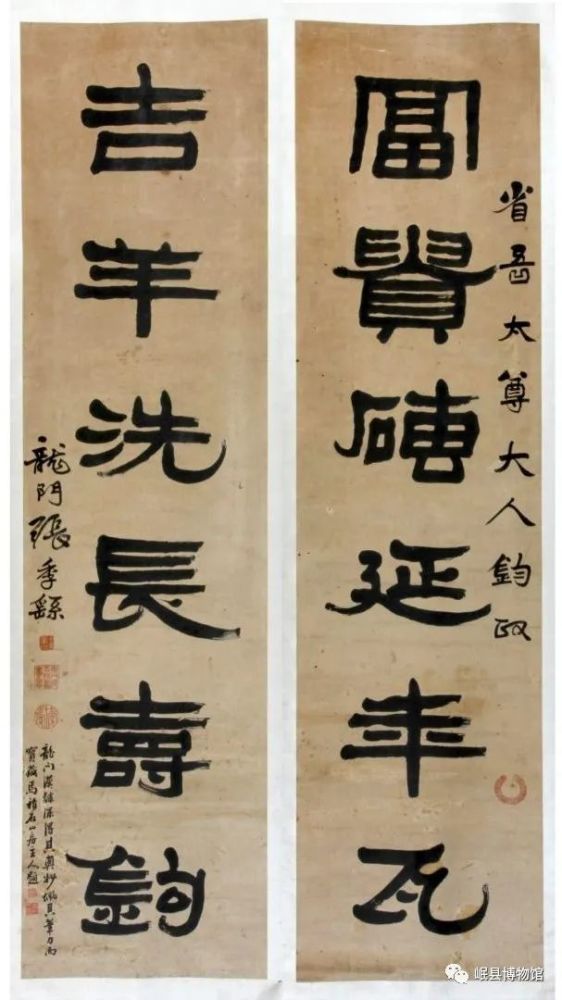 省吾太尊大人鈞政
冨貴磚延年瓦
吉羊洗長壽鈎
龍門張季繇
龍门漢隸深得其奧妙其筆力而
寶藏焉石山房主人題
岷县博物馆